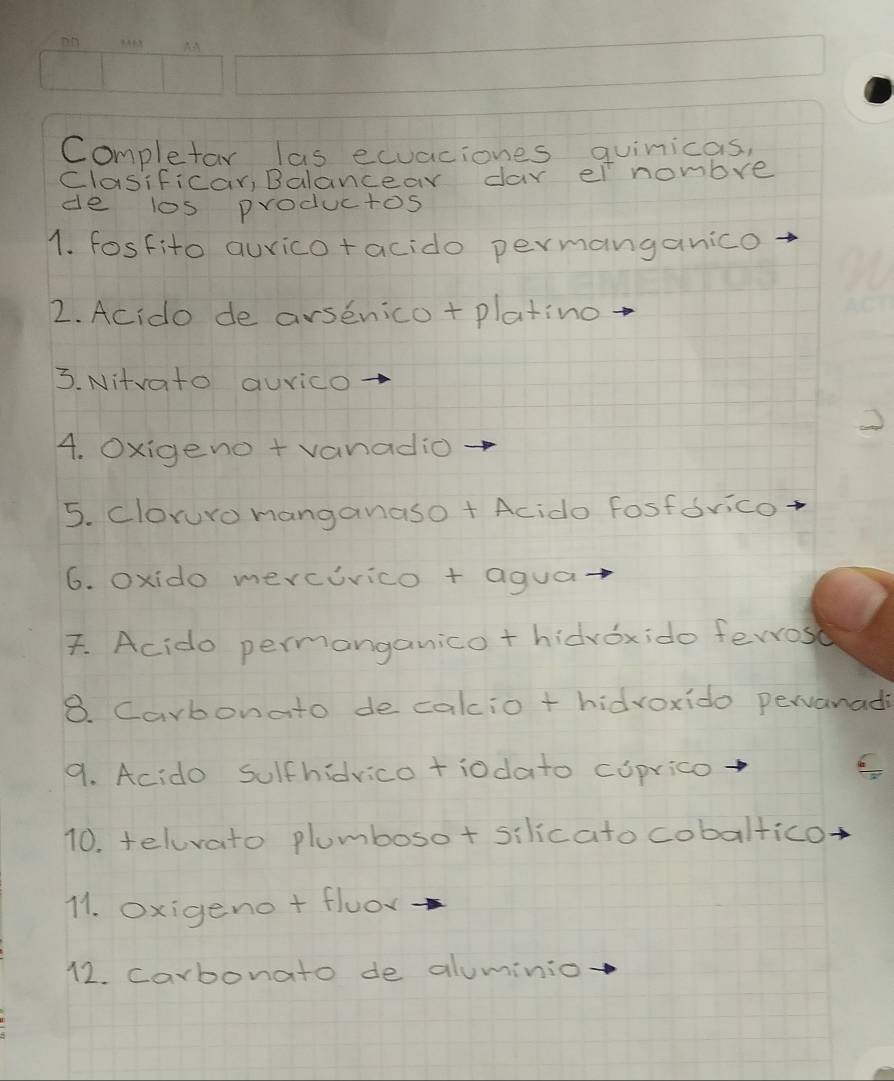 DD MM AA
Completar las ecuaciones quimicas,
Clasificar, Balancear dar el nombre
de los productos
1. fosfito aurico + acido permanganico →
2. Acido de arsénico + platino →
3. Nitrato aurico →
4. Oxigeno + vanadio →
5. Cloruro manganaso + Acido fosfórico →
6. oxido mercúrico + agua →
7. Acido permanganico + hidróxido ferroso
8. Carbonato de calcio + hidroxido pervanadi
9. Acido sulfhidrico + iodato cúprico →
10. telurato plumboso + silicato cobaltico →
11. oxigeno + fluor →
12. carbonato de aluminio →